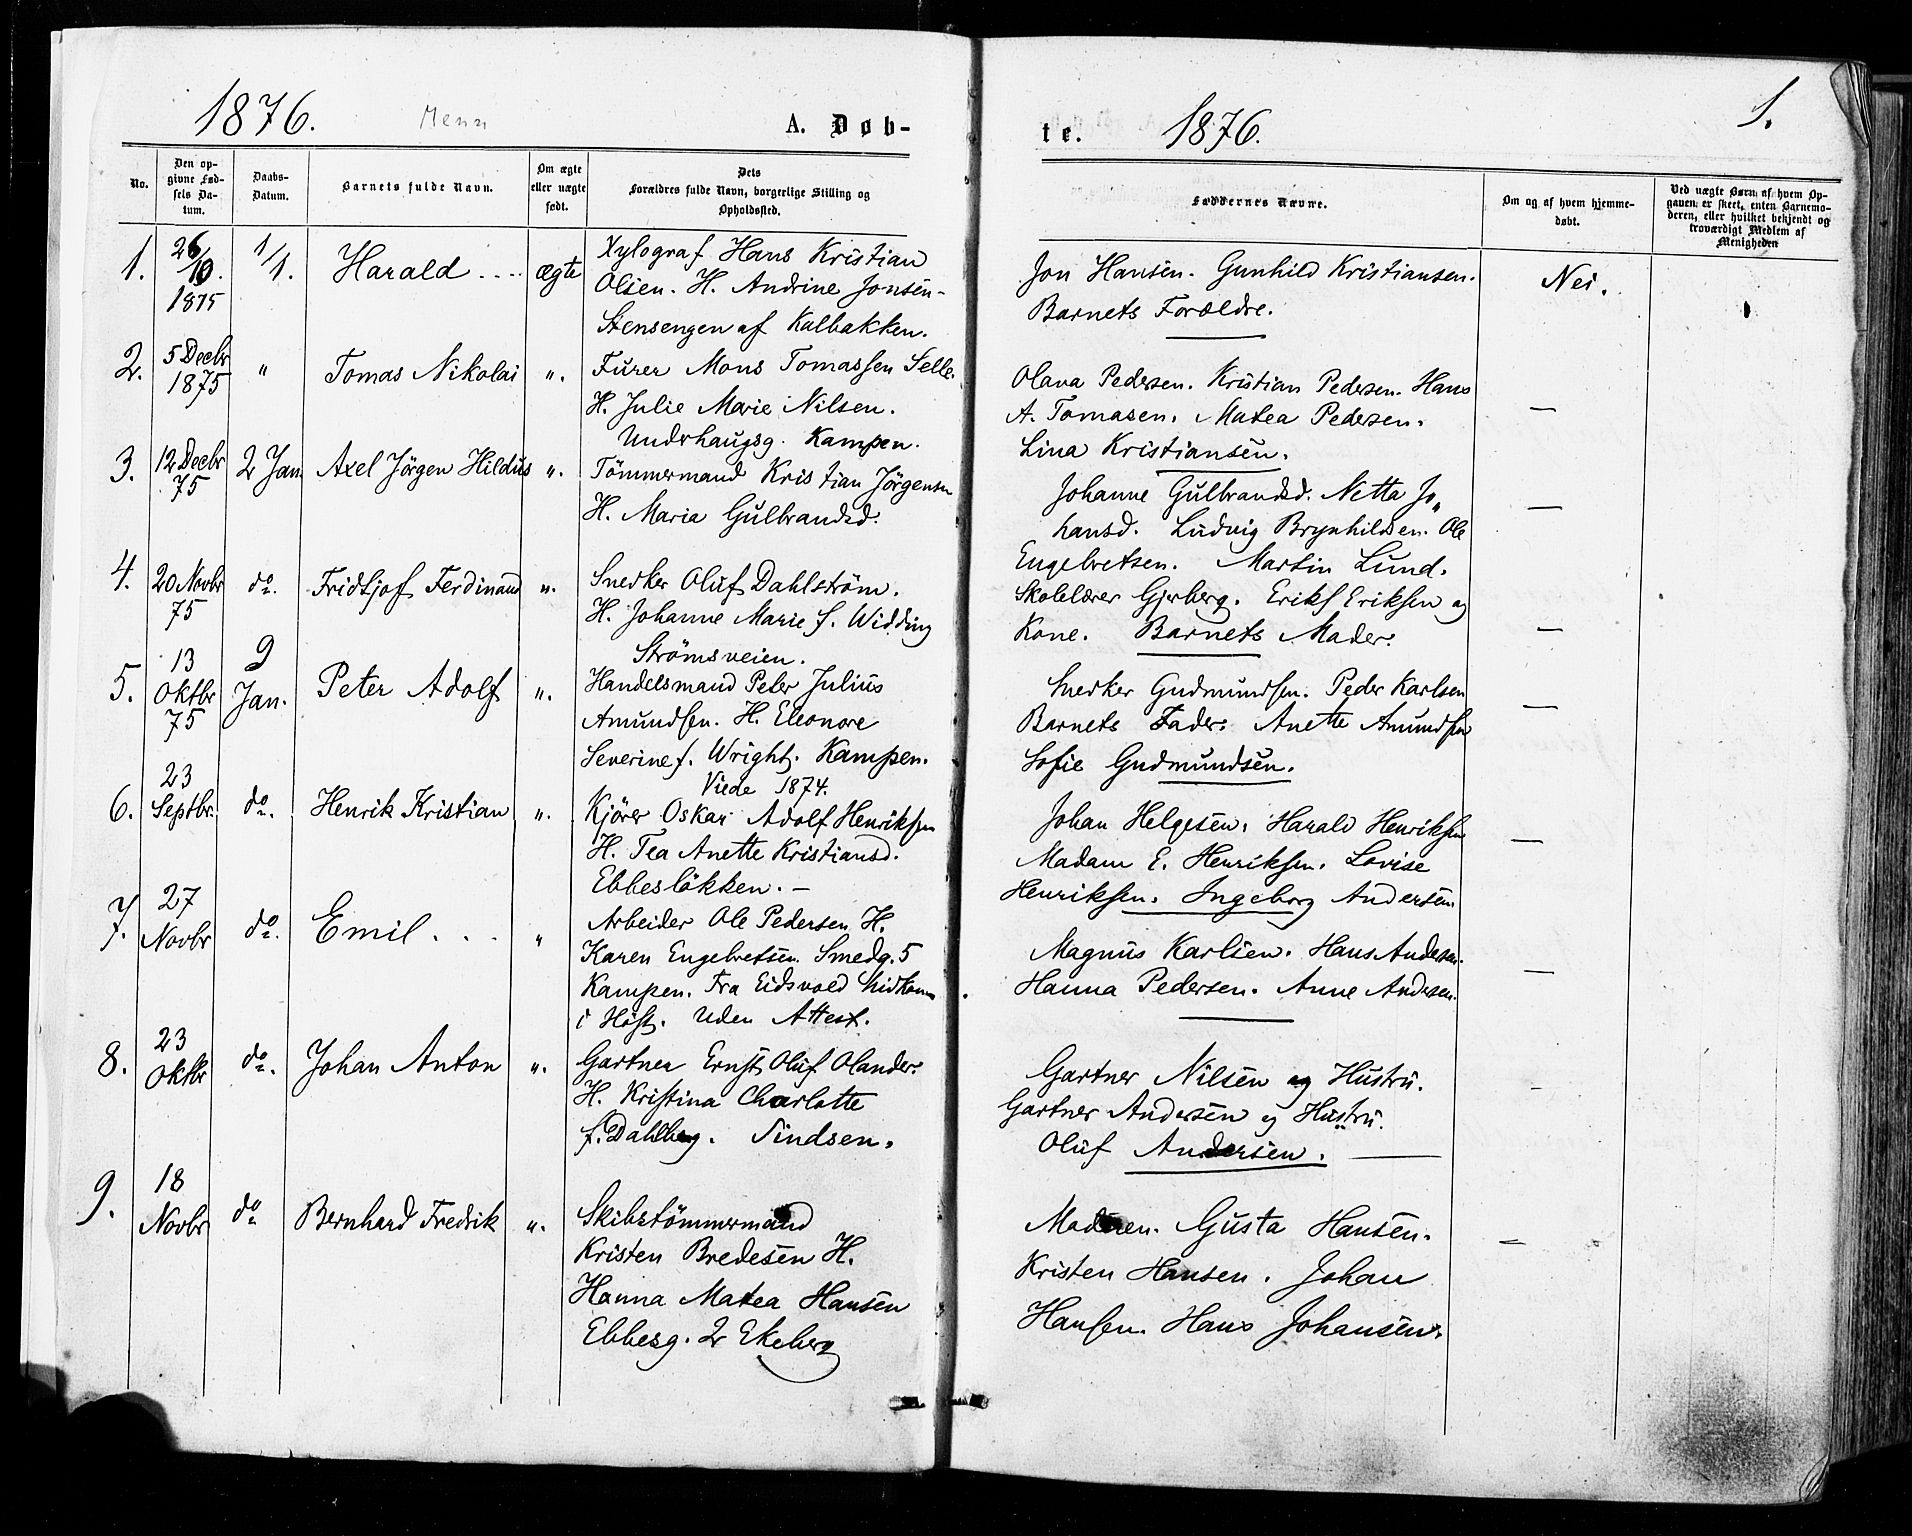 1876. Menn A. Døb-
No.
Den op-
givne Fød-
sels Da-
tum.
Daabs-
Datum.
Barnets fulde Navn.
Om ægte
eller uægte
født.
Dets
Forældres fulde Navn, borgerlige Stilling og
Opholdssted.
1. 26/10. 1/1. Harald ægte Xylograf Hans Kristian
1875 Olsen. H. Andrine Jonsen-
Stensengen af Kalbakken.
2. 5 Decbr " Tomas Nikolai ". Furer Mons Tomassen Selle.
1875 H. Julie Marie Nilsen.
Underhaugsg. Kampen.
3. 12 Decbr 2 Jan Axel Jörgen Hildus ". Tömmermand Kristian Jörgensen
75 H. Maria Gulbrandsd.
4. 20 Novbr do. Fridtjof Ferdinand ". Snedker Oluf Dahlström.
75 H. Johanne Marie f. Widding
Strömsveien.
13 9
5. Oktbr Jan. Peter Adolf ". Handelsmand Peter Julius
75 Amundsen. H. Eleonore
Severine f. Wright. Kampen.
23 Viede 1874.
6. Septbr. do. Henrik Kristian ". Kjörer Oskar Adolf Henriksen
H. Tea Anette Kristiansd.
Ebbeslökken. –
27
7. Novbr do. Emil . . . " Arbeider Ole Pedersen H.
Karen Engebretsen Smedg. 5
Kampen. Fra Eidsvold hidkom
i Höst. Uden Attest.
23
8. Oktbr do. Johan Anton ". Gartner Ernst Oluf Olander.
H. Kristina Charlotte
f. Dahlberg. Tindsen.
18
9. Novbr do Bernhard Fredrik ". Skibstömmermand
Kristen Bredesen H.
Hanna Matea Hansen
Ebbesg. 2 Ekeberg
te. 1876. 1.
Faddernes Navne.
Om og af hvem hjemme-
døbt.
Ved uægte Børn: af hvem Op-
gaven er skeet, enten Barnemo-
deren, eller hvilket bekjendt og
troværdigt Medlem af
Menigheden
Jon Hansen. Gunhild Kristiansen. Nei.
Barnets Forældre.
Olava Pedersen. Kristian Pedersen. Hans
A. Tomasen. Matea Pedersen. —
Lina Kristiansen.
Johanne Gulbrandsd. Netta Jo„
hansd. Ludvig Brynhildsen. Ole —
Engebretsen. Martin Lund.
Skolelærer Gjerberg. Erikf Eriksen og
Kone. Barnets Moder. —
Snedker Gudmundsen. Peder Karlsen
Barnets Fader. Anette Amundsen —
Sofie Gudmundsen.
Johan Helgesen. Harald Henriksen
Madam E. Henriksen. Lovise —
Henriksen. Ingeborg Andersen.
Magnus Karlsen. Hans Andersen.
Hanna Pedersen. Anne Andersen. —
Gartner Nilsen og Hustru. -
Gartner Andersen og Hustru.
Oluf Andersen. —
Moderen. Gusta Hansen. —
Kristen Hansen. Johan
Hansen. Hans Johansen.